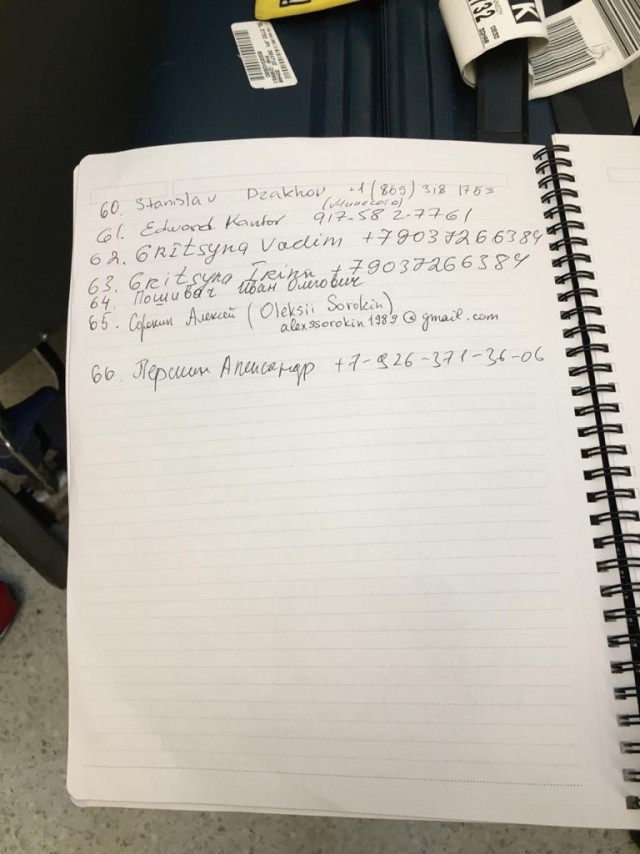 60. Stanislav Dzakhov +1 (865) 318 1753
61. Edward Kantor (Минесота) 917-582-7761
62. Gritsyna Vadim +79037266384
63. Gritsyna Irina +79037266384
64. Пошивач Иван Олегович
65. Сорокин Алексей (Oleksii Sorokin)
alexssorokin1989@gmail.com
66. Першин Александр +7-926-371-36-06
K